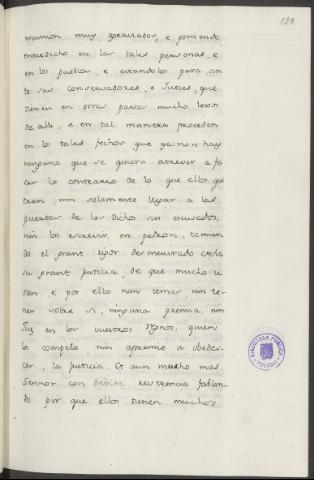 mumon muy agraviados, e poniendo
entredicho en las tales personas, e
en los pueblos, e citandolos para an
te sus conservadores, e Jueces, que
tienen en otras partes mucho lexos
de alli, e en tal manera proceden
en los tales fechos que ya non hay
ninguno que se quiera atrever a fa
cer lo contrario de lo que ellos qui
eren, nin solamente llegar a las
puertas de los dichos sus escusados,
nin los escrivir en padron, temien
do el grant rigor desmesurado
su grant justicia, de que mucho u
san e por ellos non temer nin te
ner sobre si, ninguna premia, nin
Juez en los vuestros Regnos, quien
lo compela, nin apremie a obedes-
cer, la justicia. Et aun mucho mas
Sennor con debida reverencia fablan-
do por que ellos tienen muchos
BIBLIOTECA PUBLICA
TOLEDO